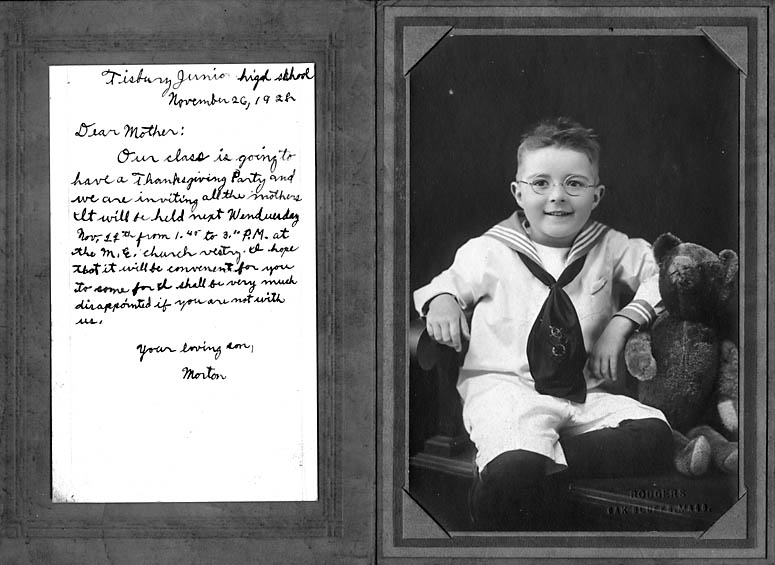 Tisbury Junior higd school
November 26, 1928
Dear Mother:
Our class is going to
have a Thanksgiving Party and
we are inviting all the mothers
It will be held next Wenduesday
Nov. from 1.45 to 3. P.M. at
the M.E. church vestry. I hope
that it will be convenent for you
to some for I shall be very much
disappointed if you are not with
us.
Your loving son,
Morton
RODGERS
OAK BLUFFS, MASS.